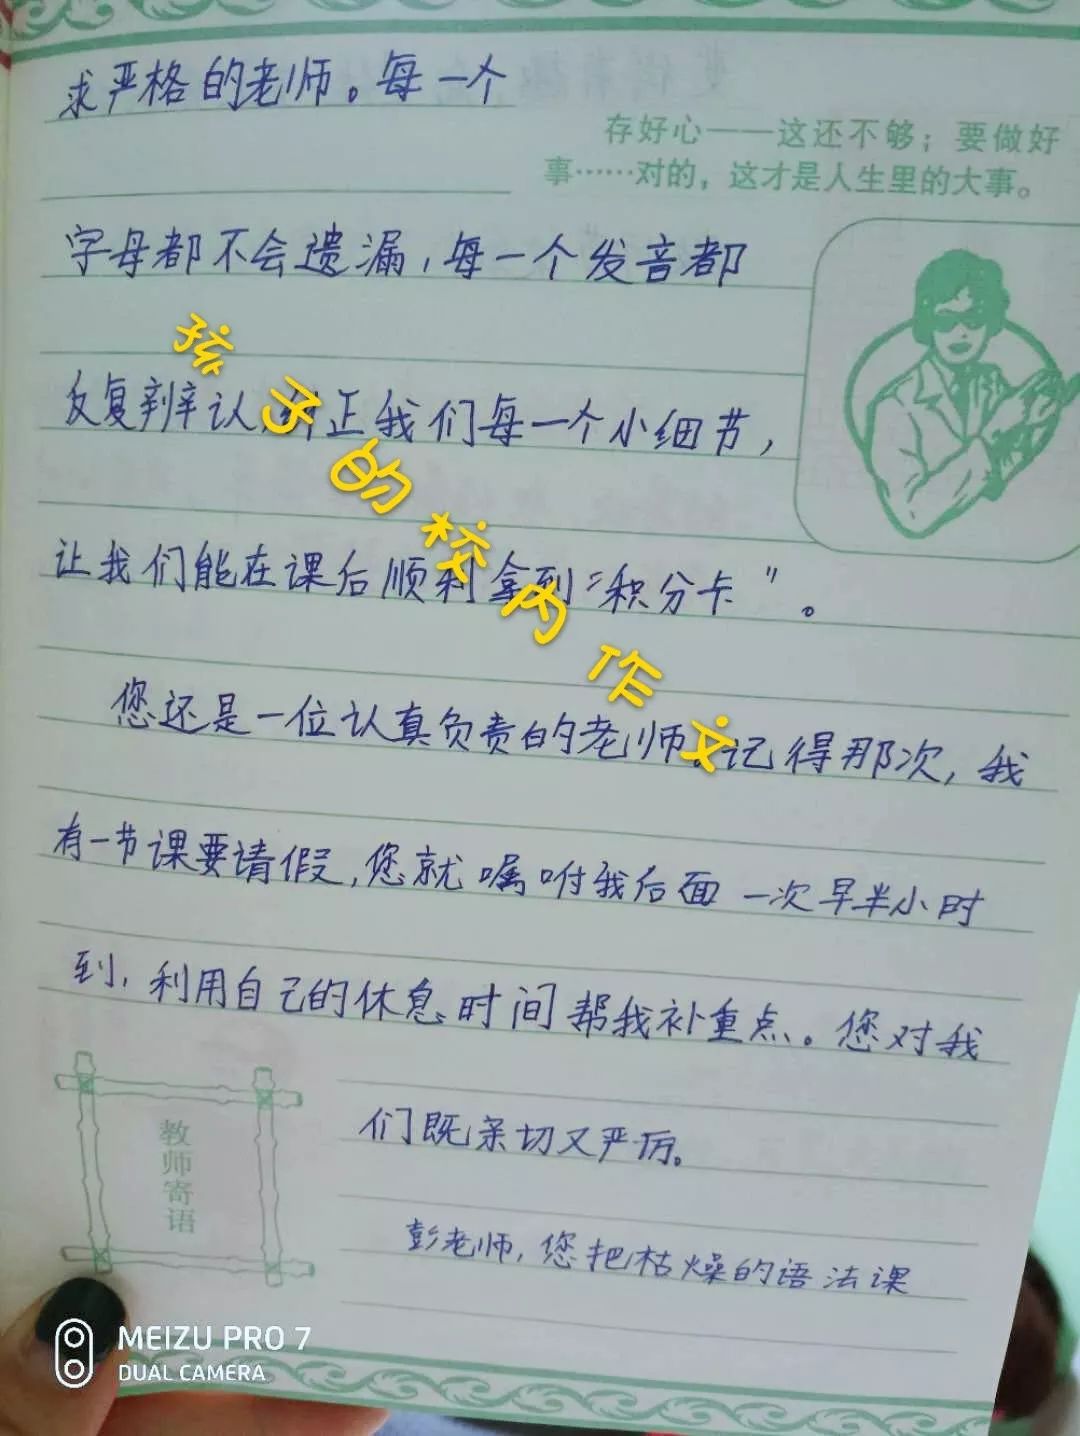 求严格的老师。每一个
存好心——这还不够；要做好
事……对的，这才是人生里的大事。
字母都不会遗漏，每一个发音都
反复辨认，纠正我们每一个小细节，
让我们能在课后顺利拿到“积分卡”。
您还是一位认真负责的老师。记得那次，我
有一节课要请假，您就嘱咐我后面一次早半小时
到，利用自己的休息时间帮我补重点。您对我
们既亲切又严厉。
彭老师，您把枯燥的语法课
教师寄语
孩子的校内作文
MEIZU PRO 7
DUAL CAMERA